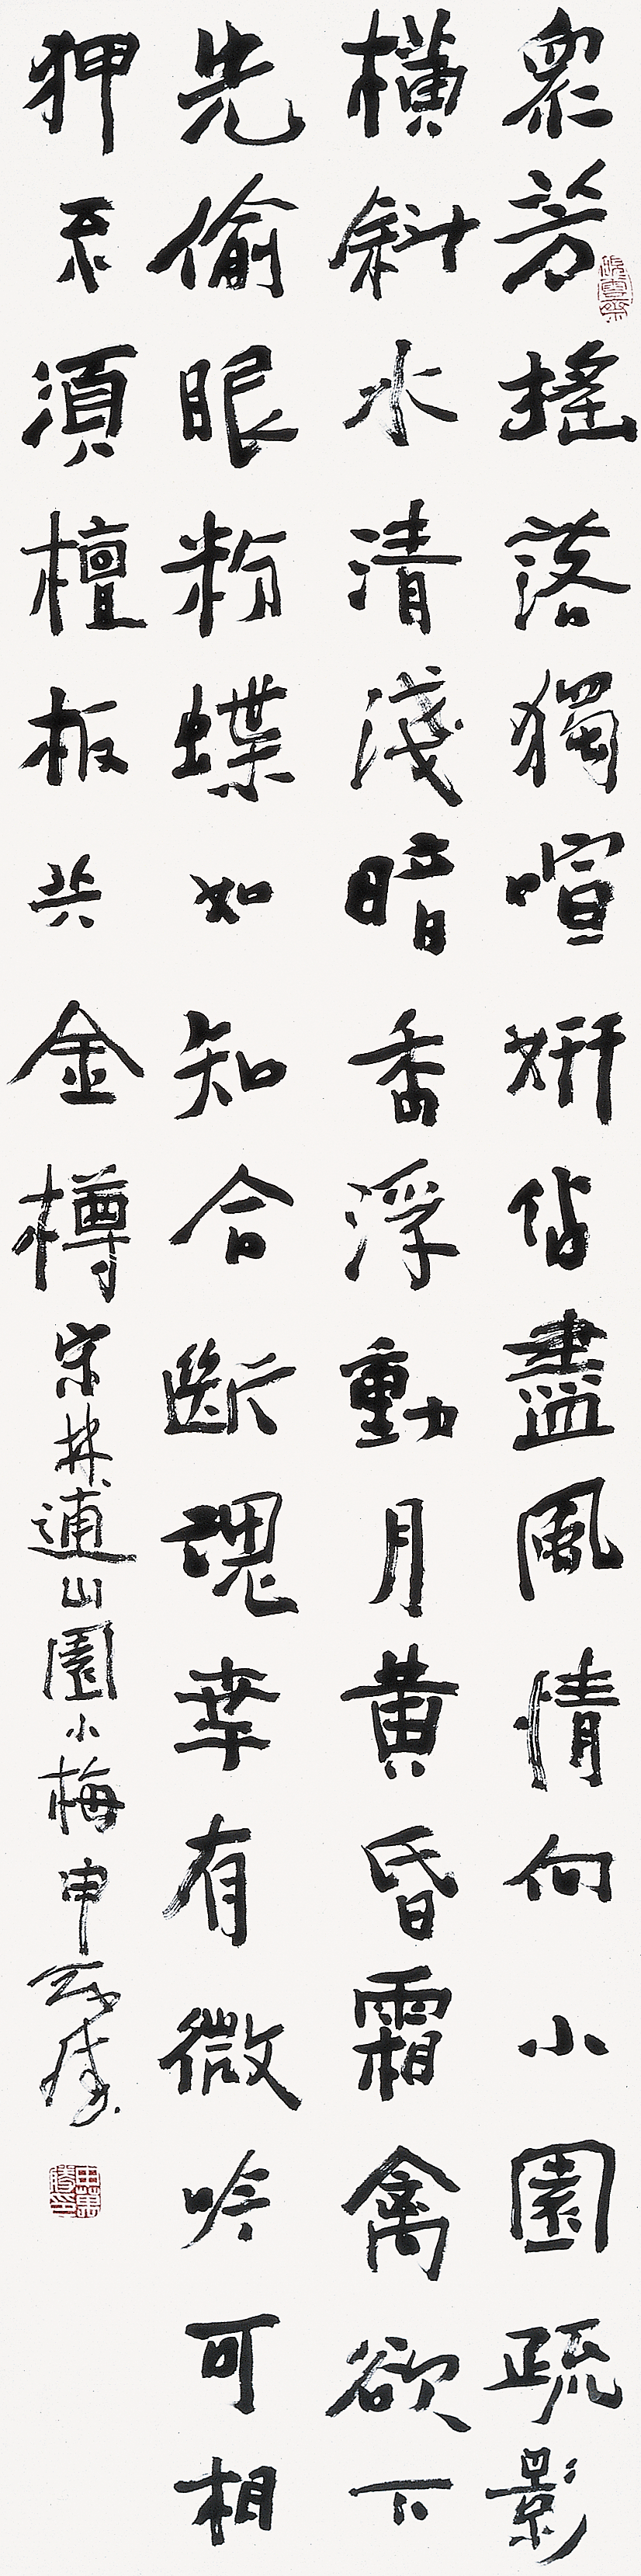 衆芳搖落獨喧妍佔盡風情向小園疏影
橫斜水清淺暗香浮動月黃昏霜禽欲下
先偷眼粉蝶如知合斷魂幸有微吟可相
狎不須檀板共金樽宋林逋山園小梅申万勝
申萬勝印